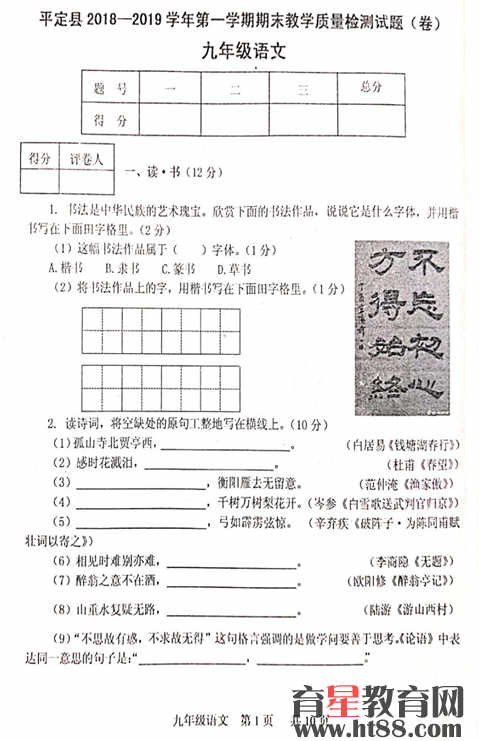 平定县 2018—2019 学年第一学期期末教学质量检测试题（卷）
九年级语文
题 号 一 二 三 总分
得 分
得分 评卷人
一、读·书(12分)
1. 书法是中华民族的艺术瑰宝。欣赏下面的书法作品，说说它是什么字体，并用楷
书写在下面田字格里。(2分)
(1)这幅书法作品属于（ ）字体。(1分)
A.楷书 B.隶书 C.篆书 D.草书
(2)将书法作品上的字，用楷书写在下面田字格里。(1分)
不忘初心
方得始终
2. 读诗词，将空缺处的原句工整地写在横线上。(10分)
(1)孤山寺北贾亭西，____________________。 (白居易《钱塘湖春行》)
(2)感时花溅泪，____________________。 (杜甫《春望》)
(3)____________________，衡阳雁去无留意。 (范仲淹《渔家傲》)
(4)____________________，千树万树梨花开。(岑参《白雪歌送武判官归京》)
(5)____________________，弓如霹雳弦惊。 (辛弃疾《破阵子·为陈同甫赋
壮词以寄之》)
(6)相见时难别亦难，____________________。 (李商隐《无题》)
(7)醉翁之意不在酒，____________________。 (欧阳修《醉翁亭记》)
(8)山重水复疑无路，____________________。 (陆游《游山西村)
(9)“不思故有惑，不求故无得”这句格言强调的是做学问要善于思考。《论语》中表
达同一意思的句子是：“____________________，____________________。”
九年级语文 第1页 共10页
育星教育网
www.ht88.com